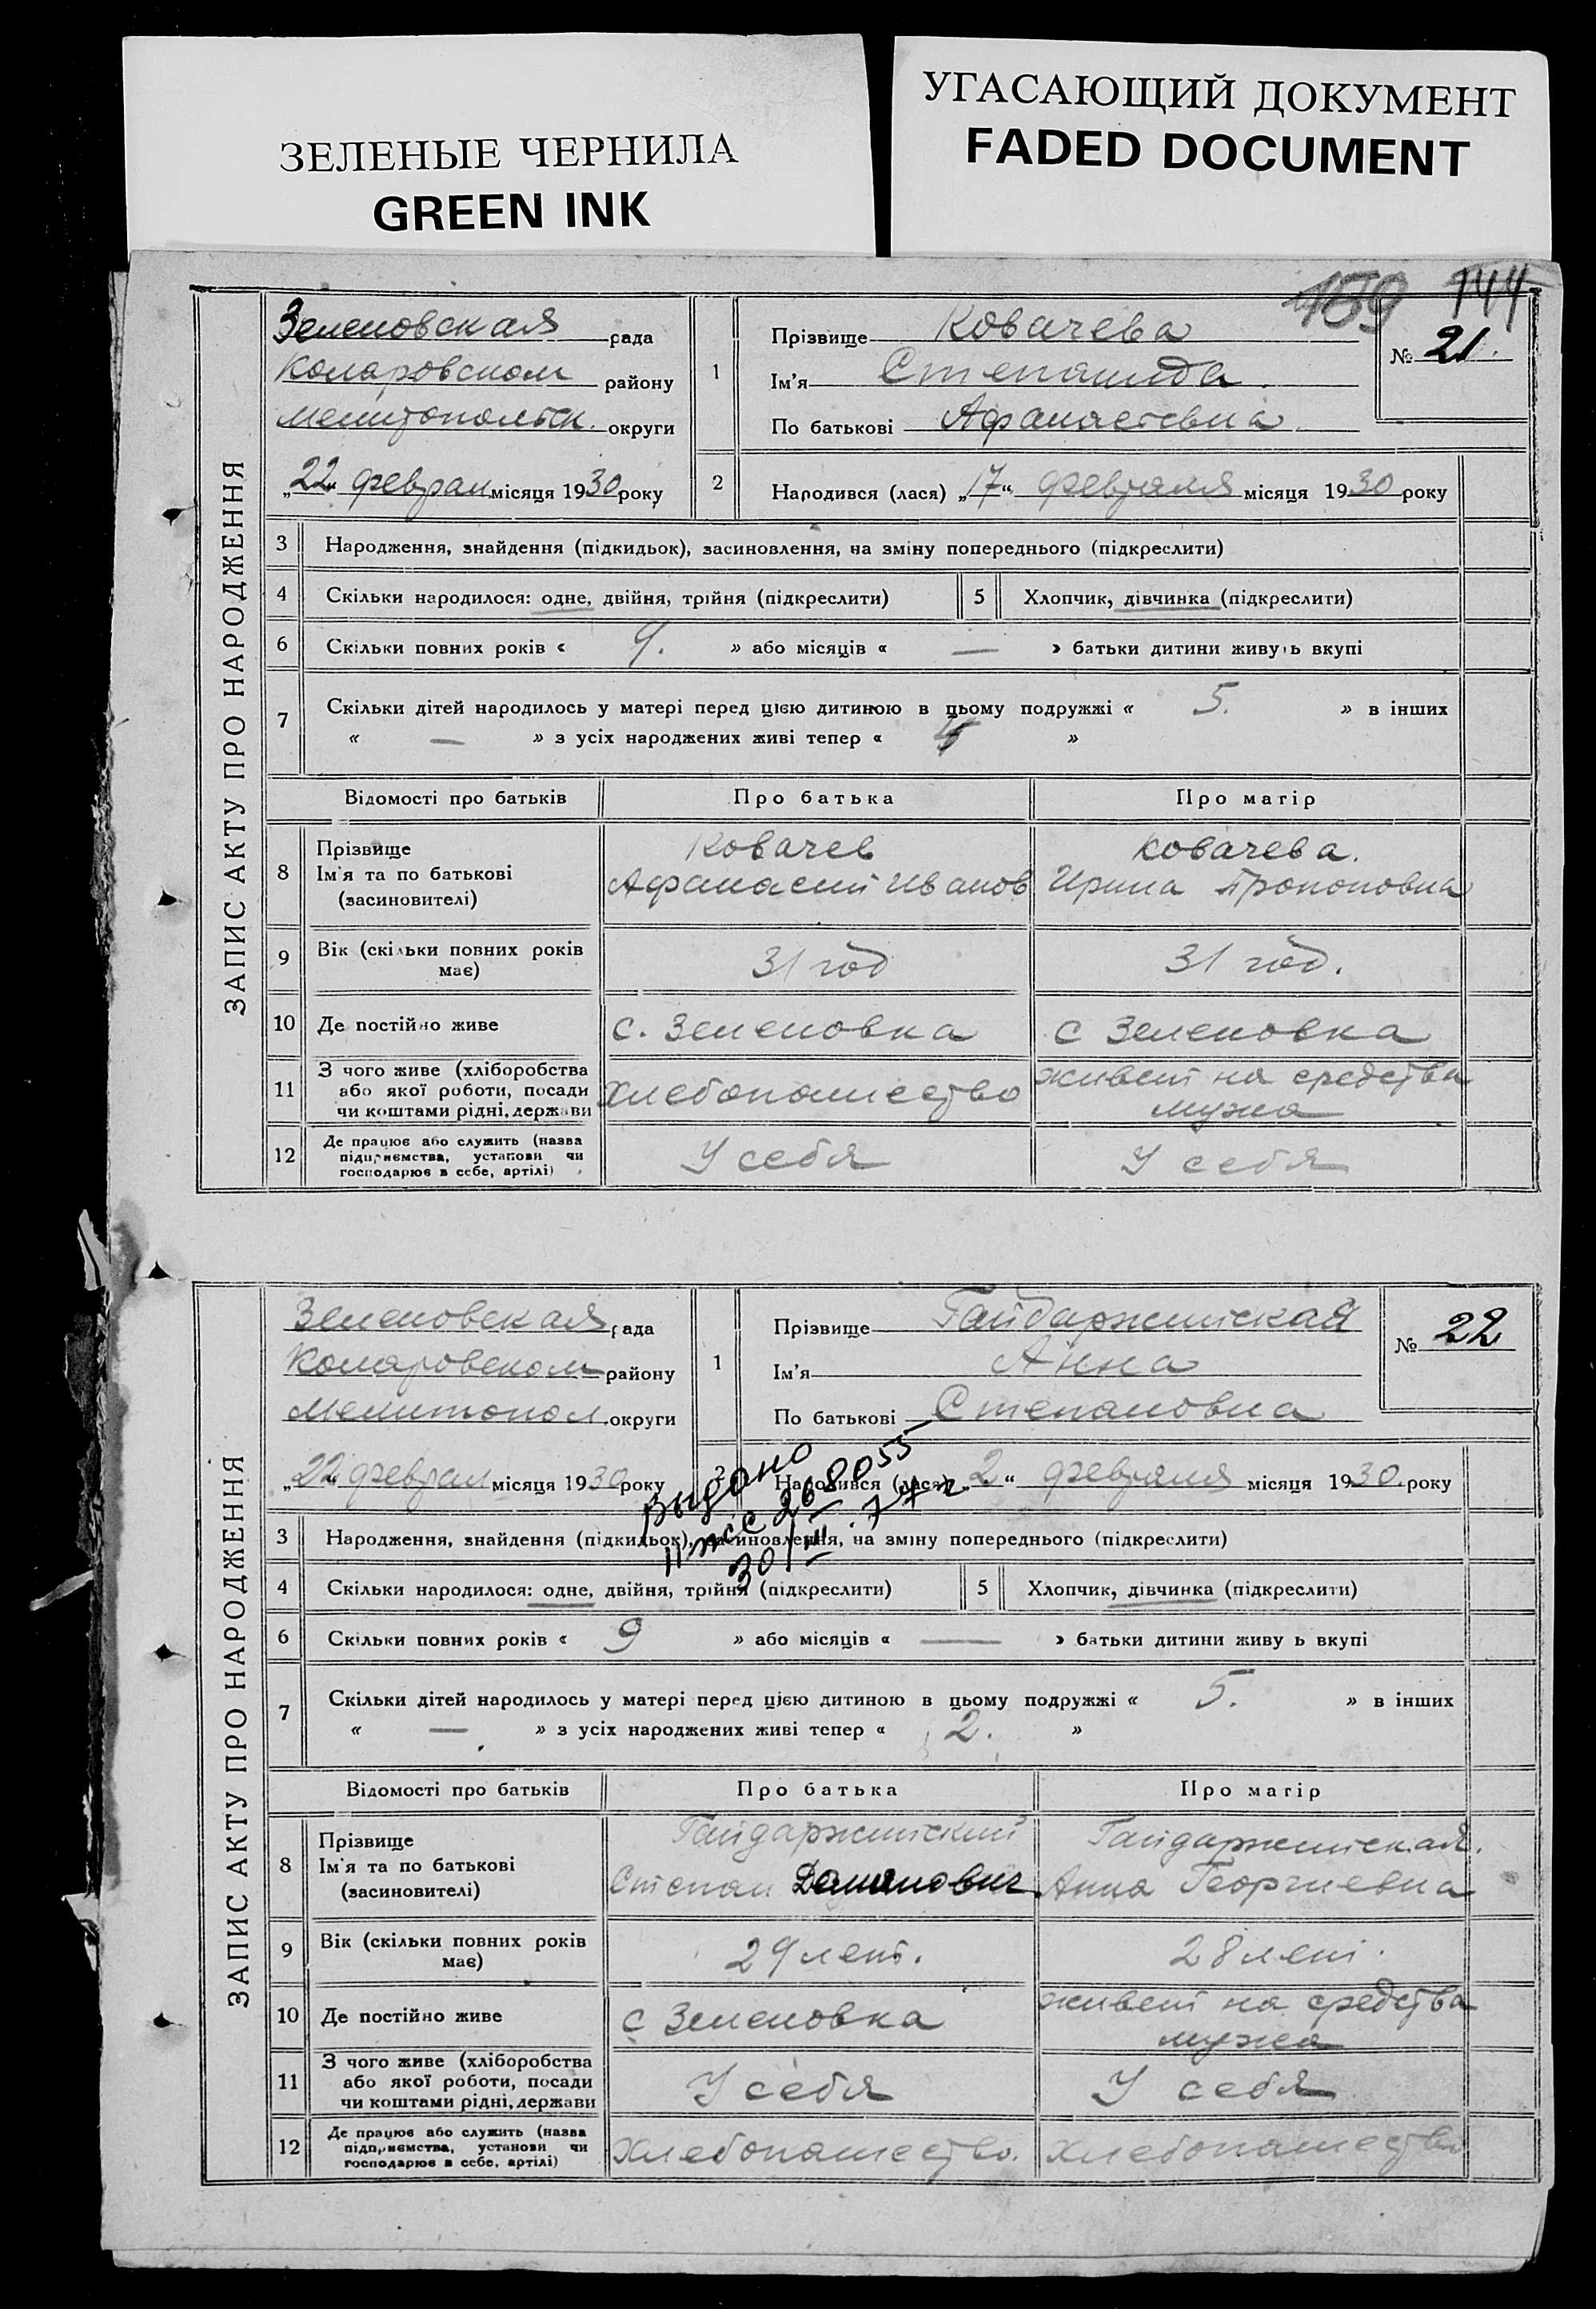 ЗЕЛЕНЫЕ ЧЕРНИЛА
GREEN INK
УГАСАЮЩИЙ ДОКУМЕНТ
FADED DOCUMENT
159 144
ЗАПИС АКТУ ПРО НАРОДЖЕННЯ
Зеленовская рада
Коларовском району
Мелитопольск. округи
„22“ феврал місяця 1930 року
1 Прізвище Ковачева
Ім'я Степанида.
По батькові Афанасьевна.
№ 21.
2 Народився (лася) „17“ февраля місяця 1930 року
3 Народження, знайдення (підкидьок), засиновлення, на зміну попереднього (підкреслити)
4 Скільки народилося: одне, двійня, трійня (підкреслити) 5 Хлопчик, дівчинка (підкреслити)
6 Скільки повних років « 9. » або місяців « — » батьки дитини живуть вкупі
7 Скільки дітей народилось у матері перед цією дитиною в цьому подружжі « 5. » в інших
« — » з усіх народжених живі тепер « »
Відомості про батьків Про батька Про матір
8 Прізвище Ковачев Ковачева.
Ім'я та по батькові Афанасий Иванов Ирина
(засиновителі)
9 Вік (скільки повних років має) 31 год 31 год.
10 Де постійно живе с. Зеленовка с Зеленовка
11 З чого живе (хліборобства або якої роботи, посади чи коштами рідні, держави Хлебопашество живет на средства мужа
12 Де працює або служить (назва підприємства, установи чи господарює в себе, артілі) У себя У себя
ЗАПИС АКТУ ПРО НАРОДЖЕННЯ
Зеленовская рада
Коларовском району
Мелитопол. округи
„22“ феврал місяця 1930 року
1 Прізвище Гайдаржийская
Ім'я Анна
По батькові Степановна
№ 22
2 Народився (лася) „2“ февраля місяця 1930 року
Видано
268055
30/III-77 г
3 Народження, знайдення (підкидьок), засиновлення, на зміну попереднього (підкреслити)
4 Скільки народилося: одне, двійня, трійня (підкреслити) 5 Хлопчик, дівчинка (підкреслити)
6 Скільки повних років « 9 » або місяців « — » батьки дитини живуть вкупі
7 Скільки дітей народилось у матері перед цією дитиною в цьому подружжі « 5. » в інших
« — » з усіх народжених живі тепер « 2. »
Відомості про батьків Про батька Про матір
8 Прізвище Гайдаржийский Гайдаржийская.
Ім'я та по батькові Степан Анна Георгиевна
(засиновителі)
9 Вік (скільки повних років має) 29 лет. 28 лет.
10 Де постійно живе с Зеленовка живет на средства мужа
11 З чого живе (хліборобства або якої роботи, посади чи коштами рідні, держави У себя У себя
12 Де працює або служить (назва підприємства, установи чи господарює в себе, артілі) Хлебопашество. Хлебопашество